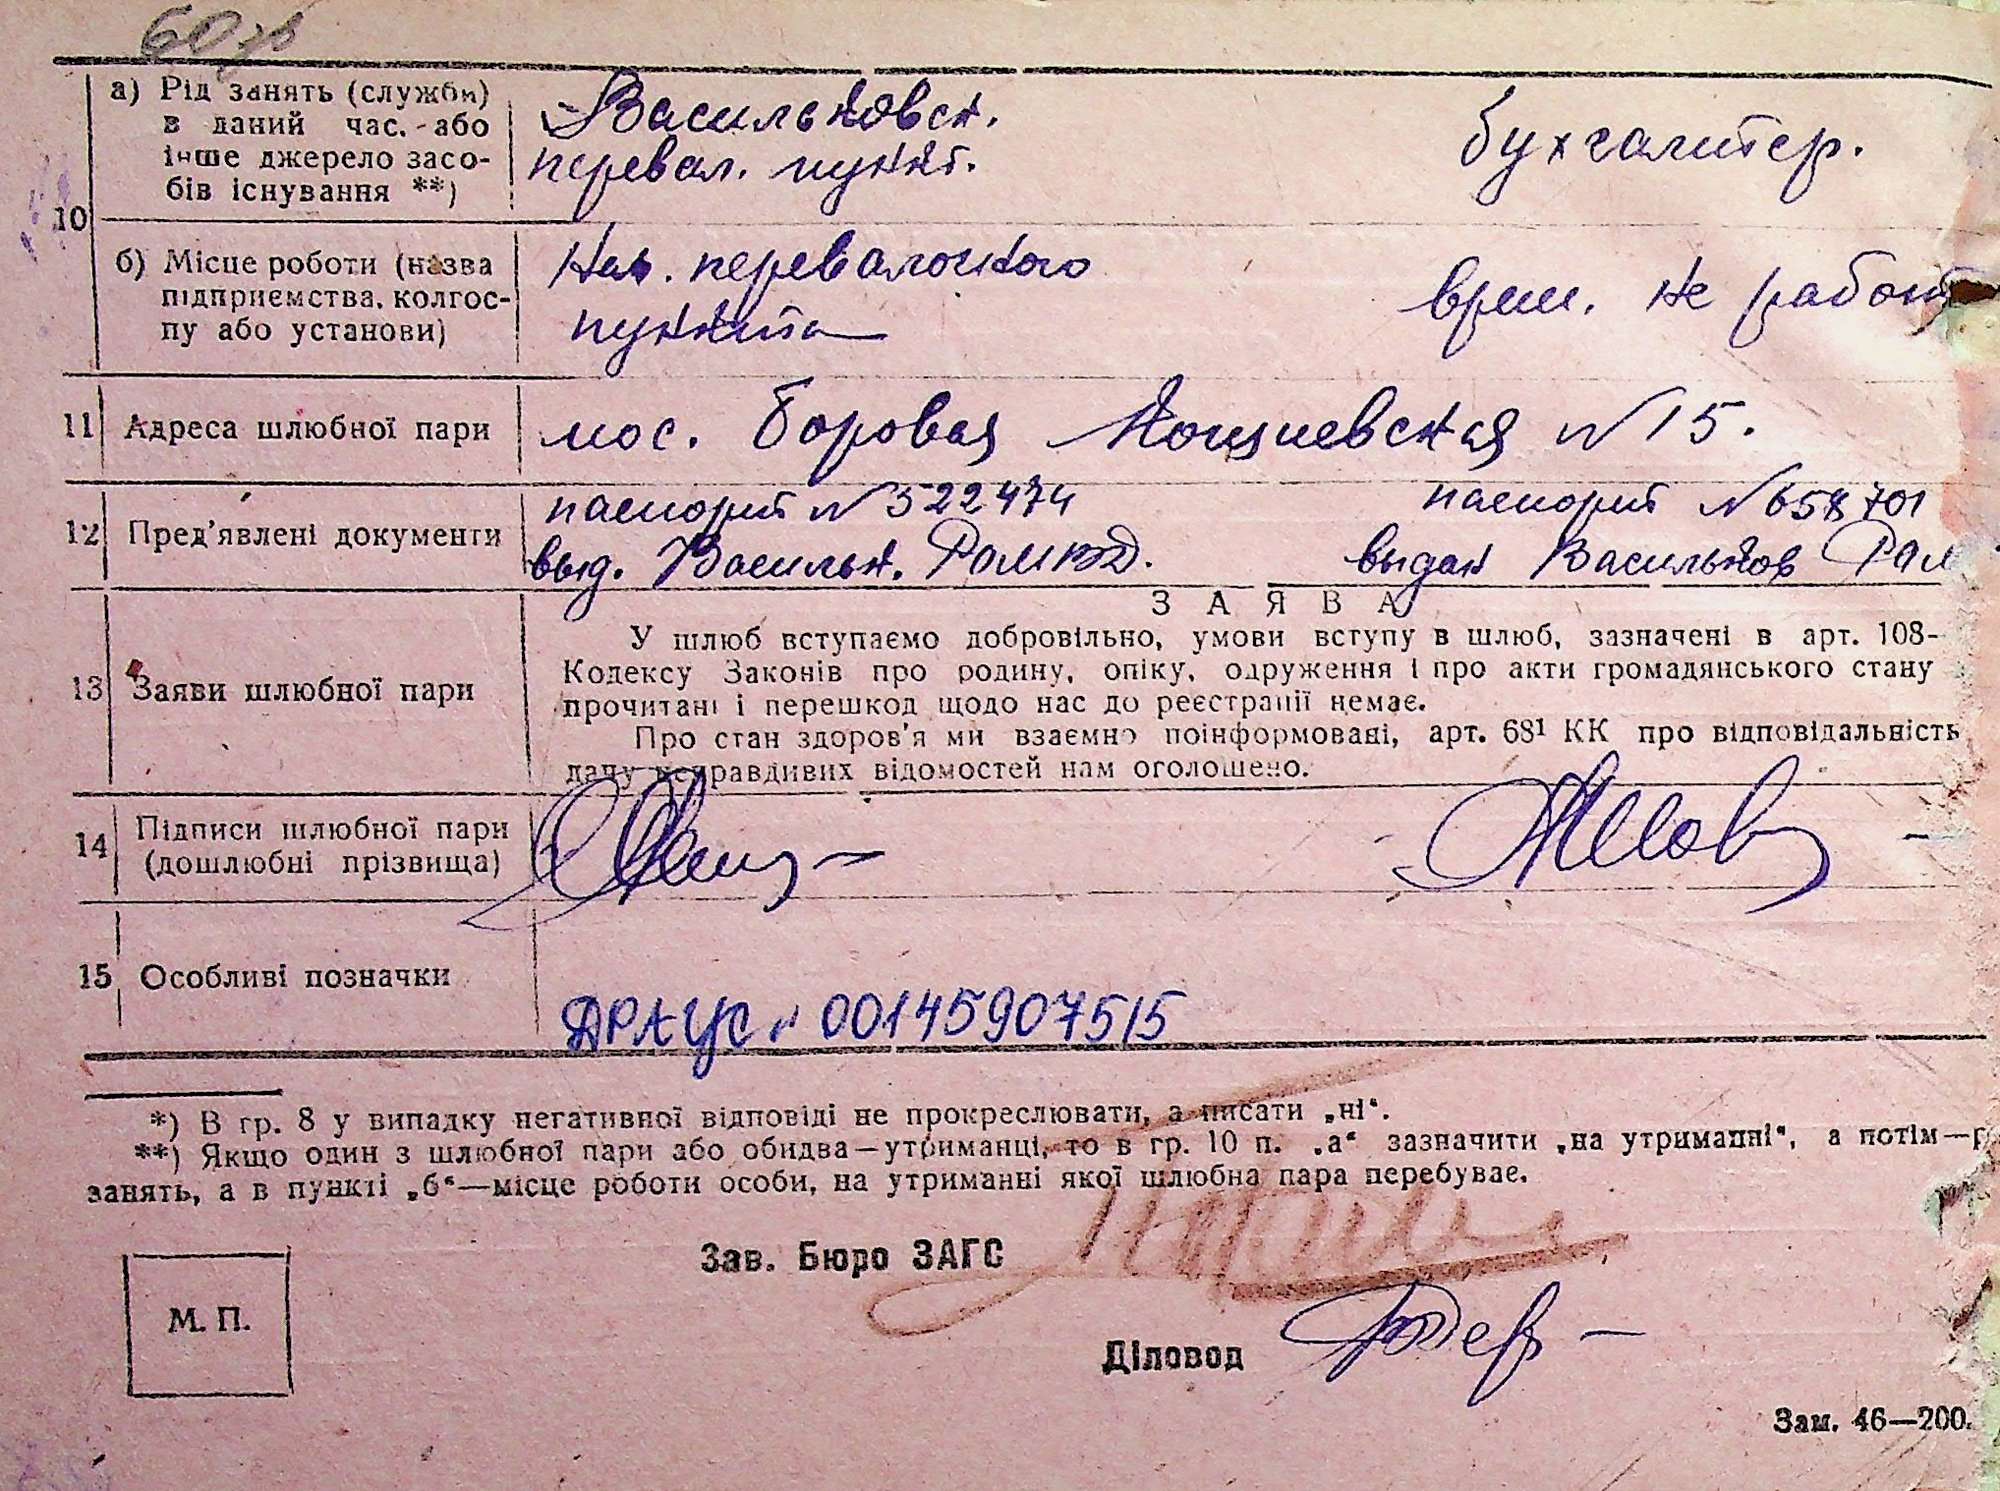 60
10
а) Рід занять (служби) в даний час. або інше джерело засобів існування **)
Васильковск. перевал. пункт.
бухгалтер.
б) Місце роботи (назва підприємства, колгоспу або установи)
Нач. перевалочного пункта
врем. не работ
11 Адреса шлюбної пари
мос. Боровая № 15.
12 Пред'явлені документи
паспорт № 522474
выд. Васильк. РОМВД.
паспорт № 658701
выдан Васильков РОМ
З А Я В А
13 Заяви шлюбної пари
У шлюб вступаємо добровільно, умови вступу в шлюб, зазначені в арт. 108-
Кодексу Законів про родину, опіку, одруження і про акти громадянського стану
прочитані і перешкод щодо нас до реєстрації немає.
Про стан здоров'я ми взаємно поінформовані, арт. 68¹ КК про відповідальність
дачу неправдивих відомостей нам оголошено.
14 Підписи шлюбної пари
(дошлюбні прізвища)
15 Особливі позначки
ДРАЦС № 00145907515
*) В гр. 8 у випадку негативної відповіді не прокреслювати, а писати „ні“.
**) Якщо один з шлюбної пари або обидва—утриманці, то в гр. 10 п. „а“ зазначити „на утриманні“, а потім—р
занять, а в пункті „б“—місце роботи особи, на утриманні якої шлюбна пара перебуває.
Зав. Бюро ЗАГС
М. П.
Діловод
Зам. 46—200.